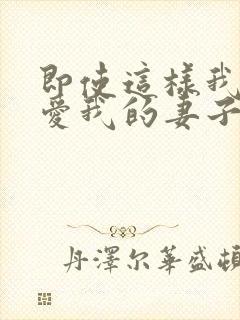 即使這樣我
愛我的妻子
丹澤尔華盛頓